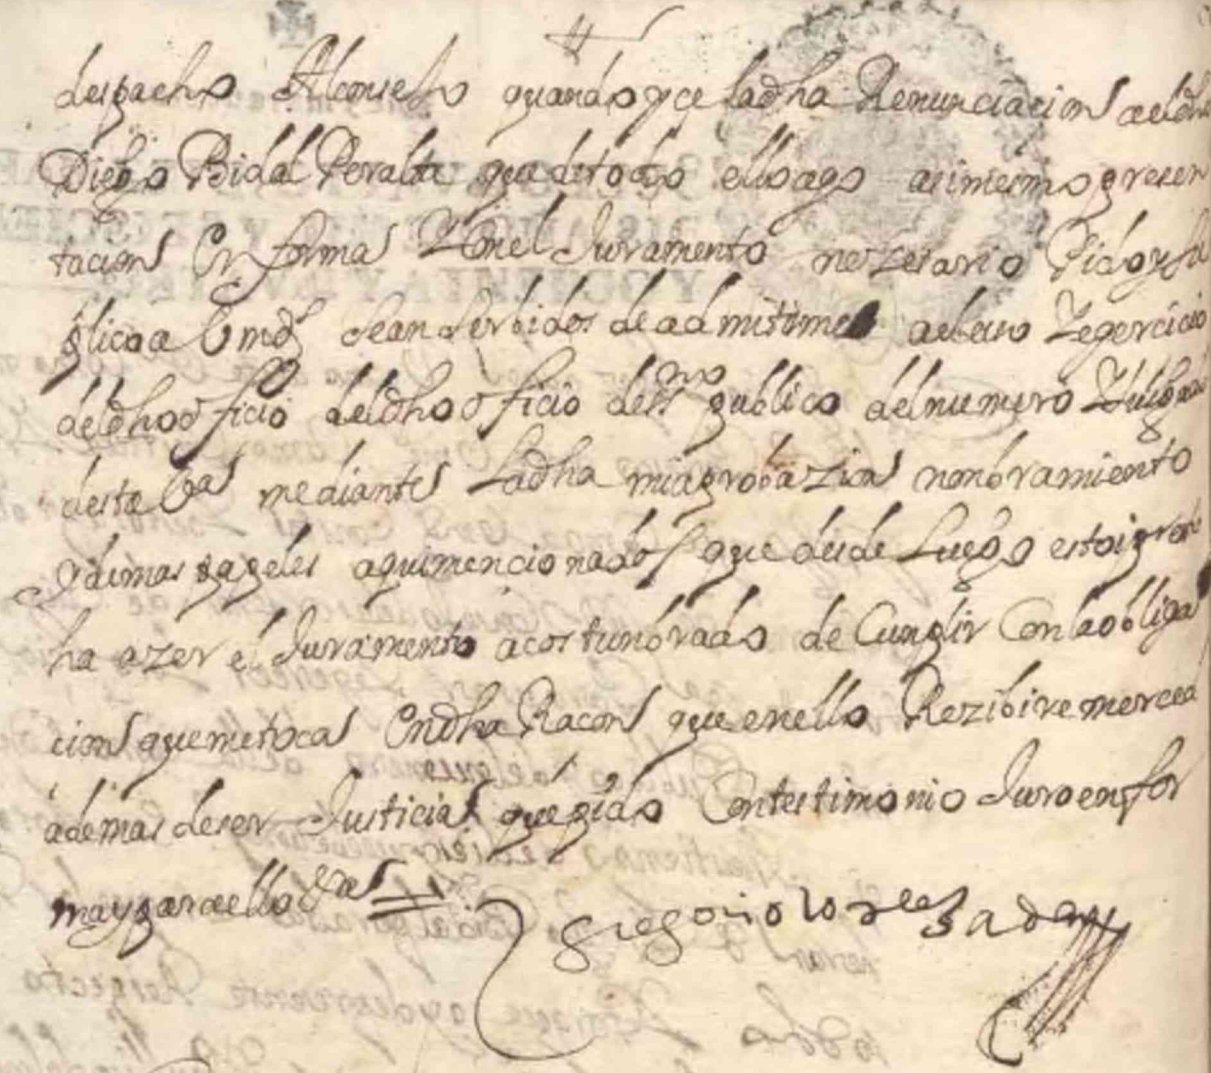 despacho Alconsejo quando yce ladha Renunciacion
Diego Bidal Peralta que detodo ello ago asimesmo presen
tacion En forma Y Conel Juramento nezesario Pido y su
plico a Vmds sean serbidos de admitirme aeluso Y egercicio
deldho oficio deldho oficio de ssno publico del numero
desta Va mediante Ladha mi aprobazion nonbramiento
y demas papeles aqui mencionados que desde Luego estoi pron
ha azer el Juramento acostunbrado de Cunplir Con la obliga
cion que me toca En dha Racon que en ello Rezibire merced
ademas de ser Justicia que pido Con testimonio Juro en for
ma y para ello Va